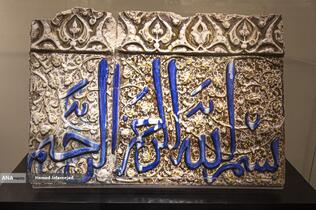 بسم الله الرحمن الرحیم
ANA
Hamed Jafarnejad